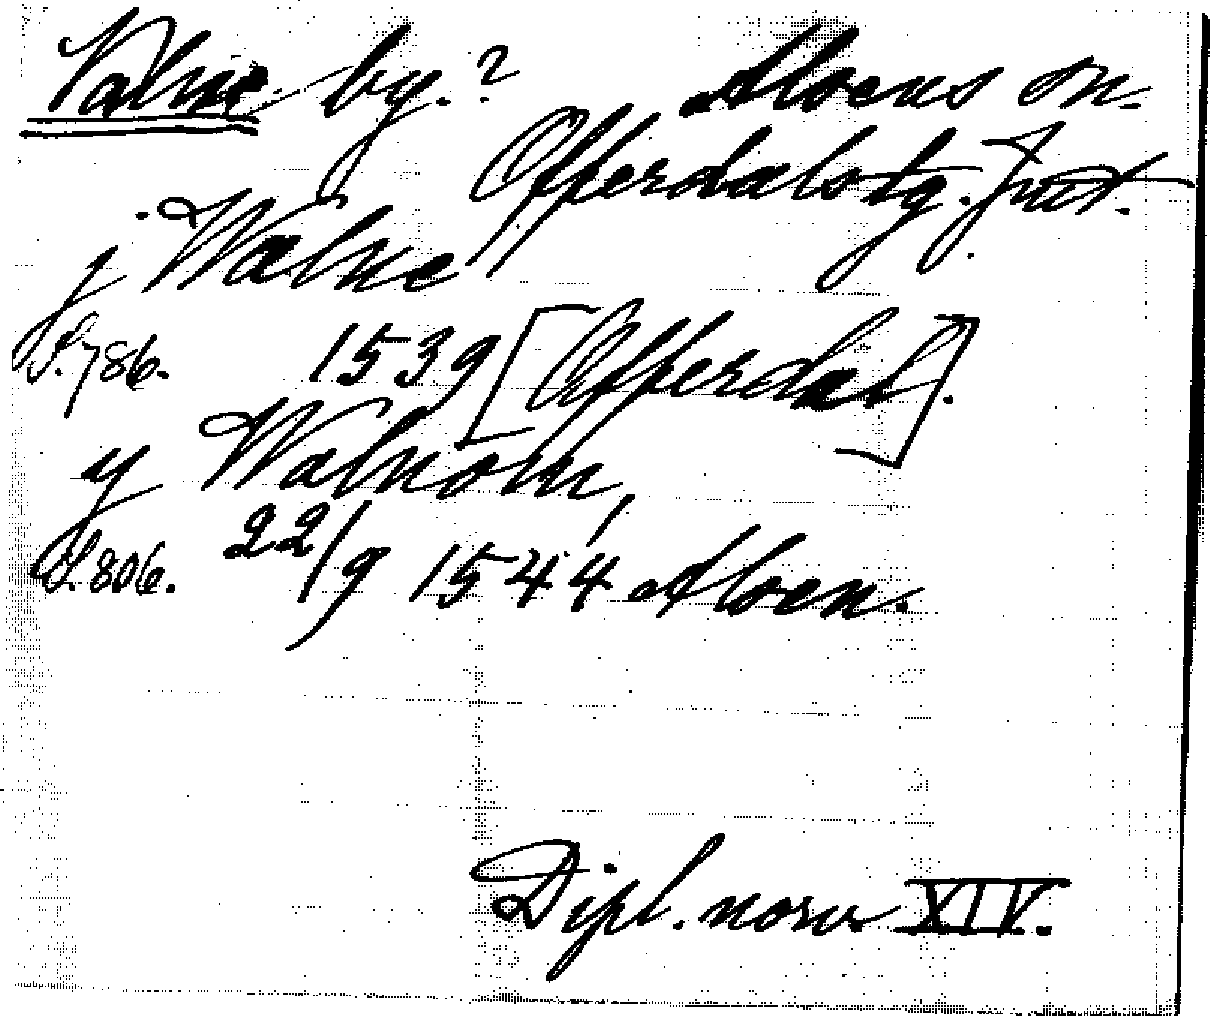 Valne by.? Aloens sn.
Offerdals tg. Jmt.
j Walne
S. 786. 1539 [Offerdal].
y Walnom,
S. 806. 22/9 1544 Aloen.
Dipl. norv XIV.